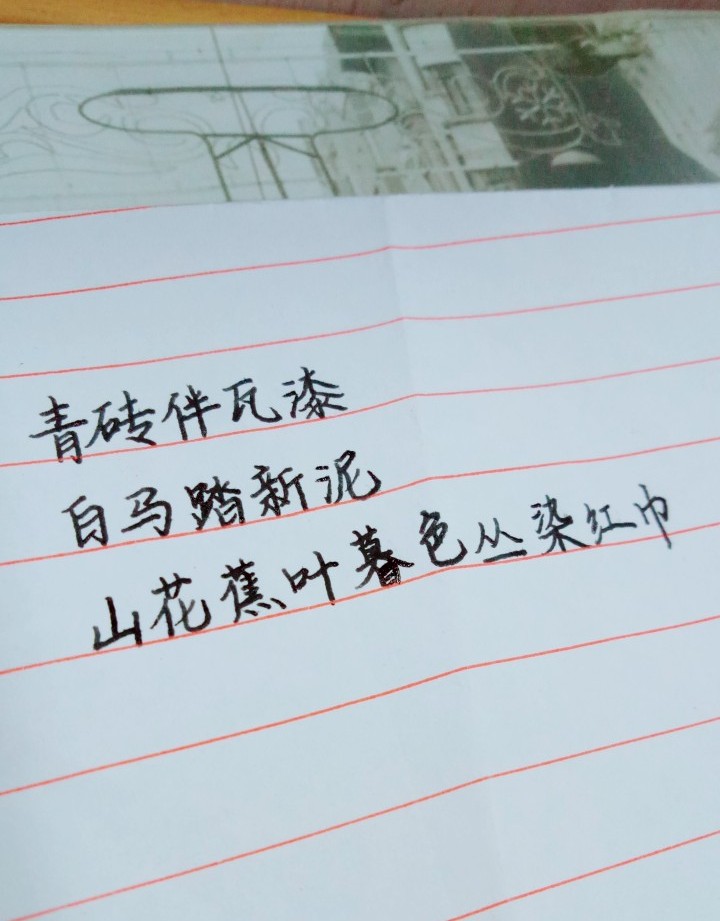 青砖伴瓦漆
白马踏新泥
山花蕉叶暮色丛染红巾